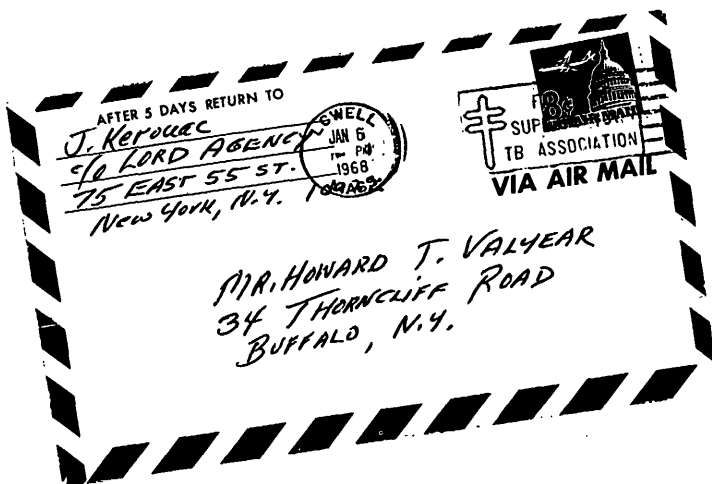 AFTER 5 DAYS RETURN TO
J. Kerouac
c/o LORD AGENCY
75 EAST 55 ST.
New York, N.Y.
SWELL
JAN 6
PM
1968
8¢
TB ASSOCIATION
VIA AIR MAIL
MR. HOWARD T. VALYEAR
34 THORNCLIFF ROAD
BUFFALO, N.Y.